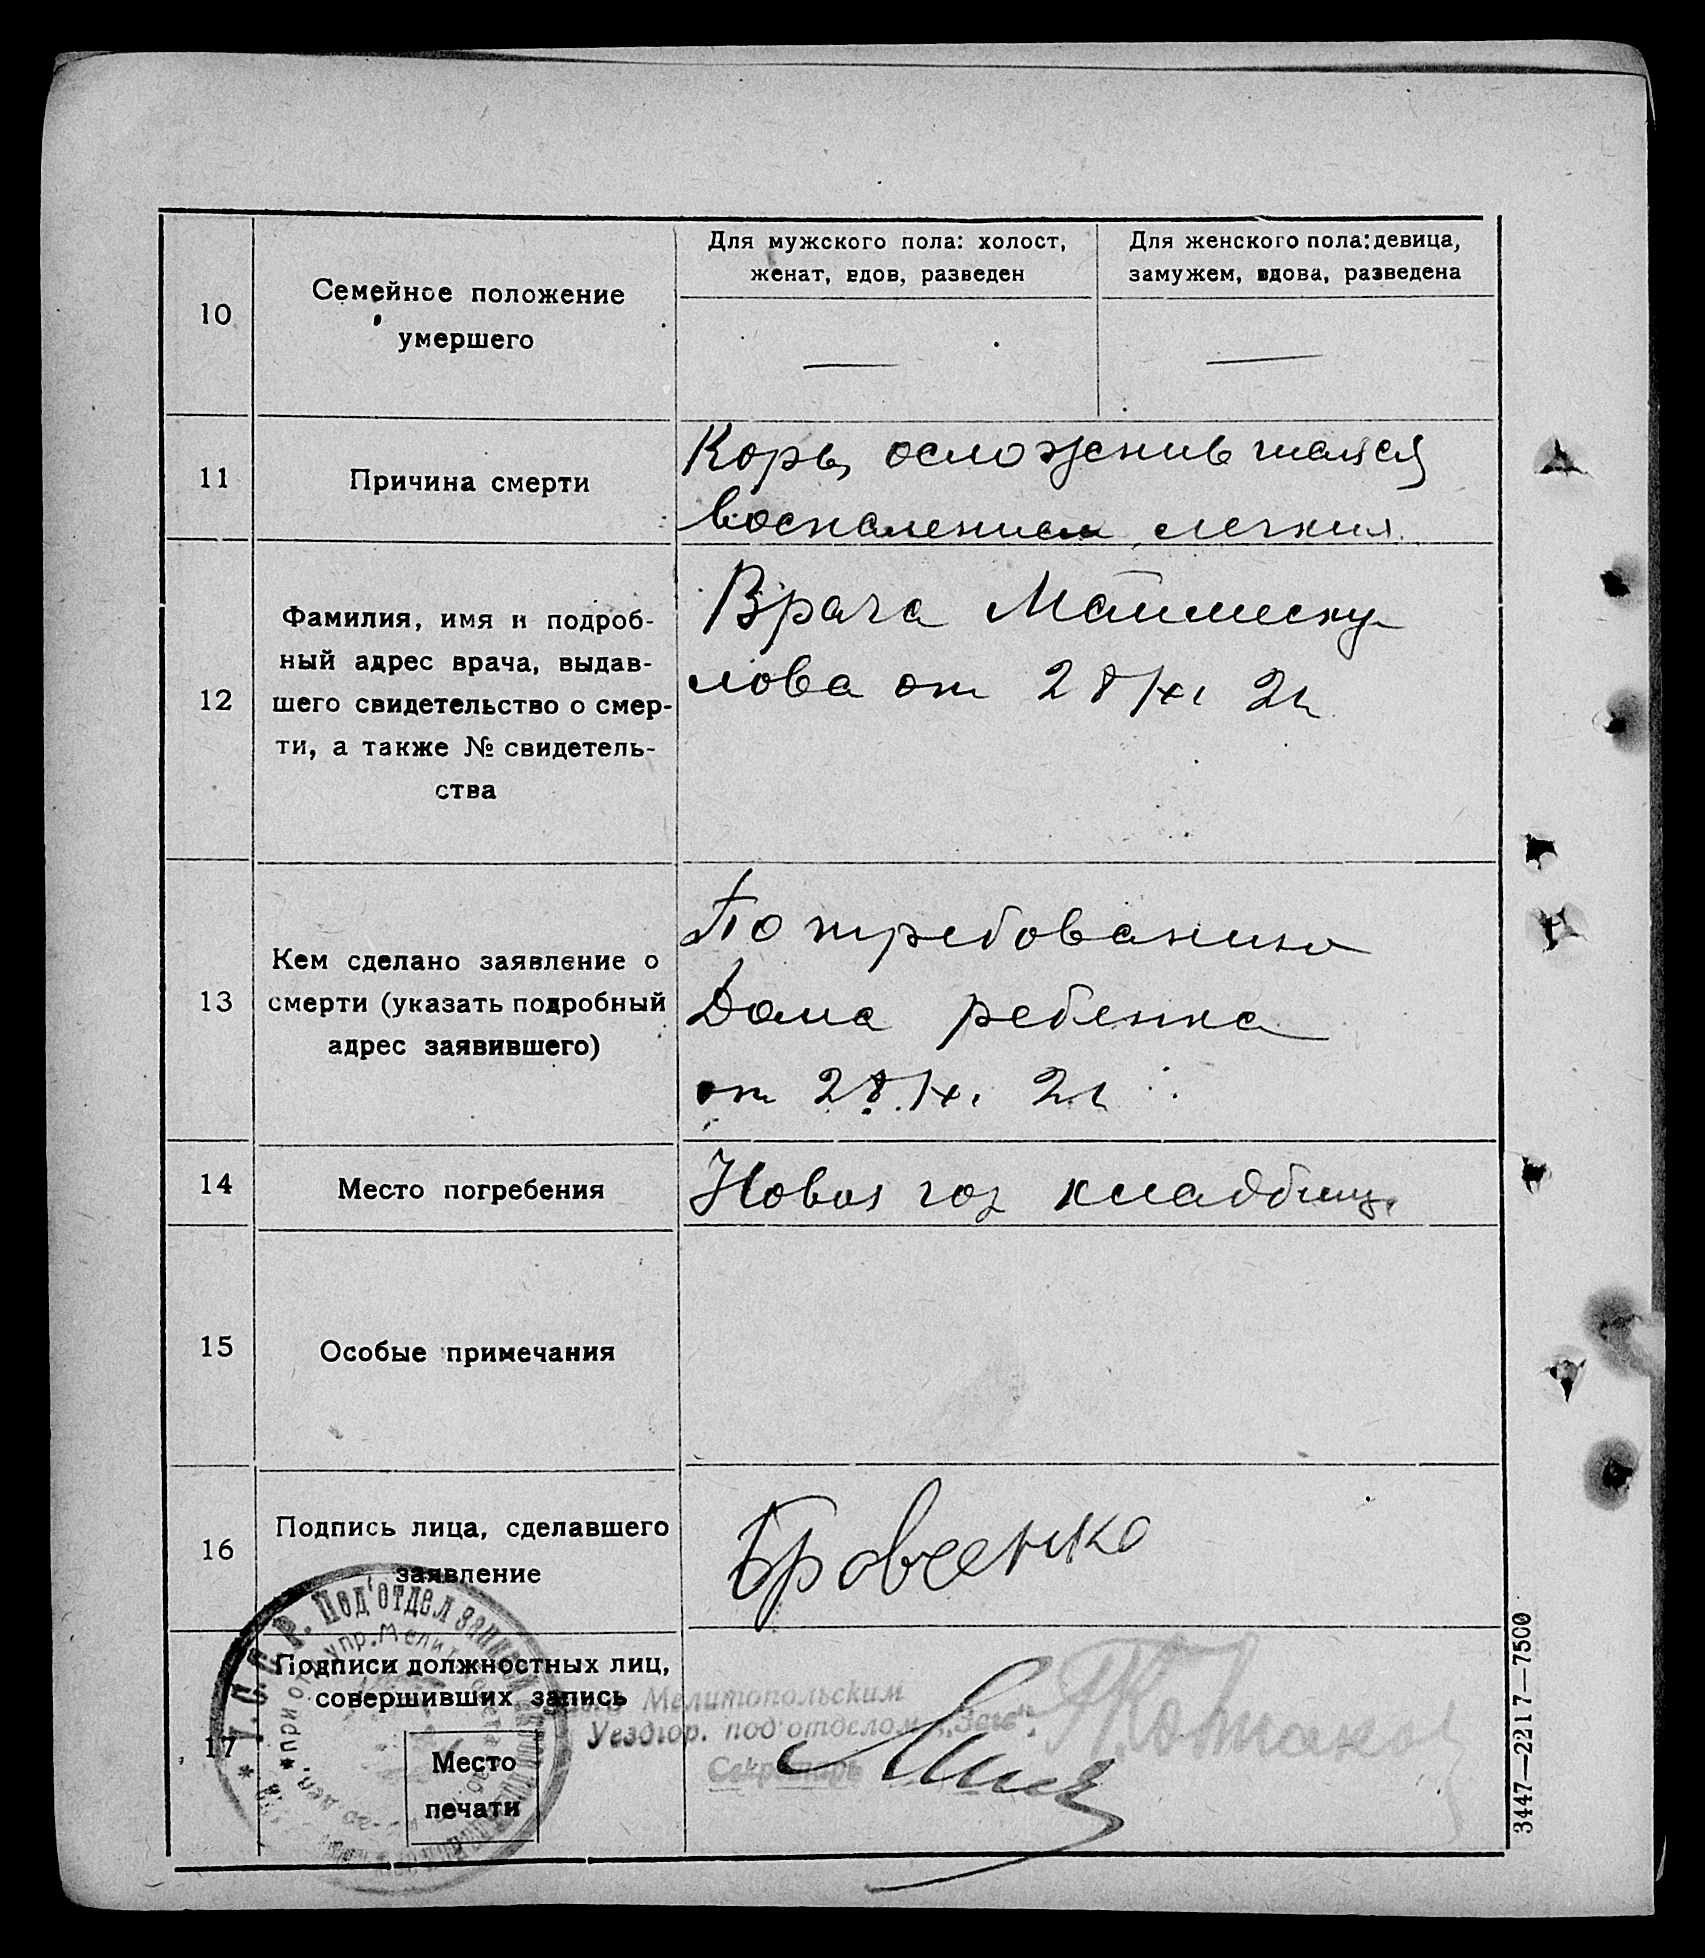 10
Семейное положение
умершего
Для мужского пола: холост,
женат, вдов, разведен
Для женского пола: девица,
замужем, вдова, разведена
—
—
11
Причина смерти
Корь, осложнившаяся
воспалением легких
12
Фамилия, имя и подроб-
ный адрес врача, выдав-
шего свидетельство о смер-
ти, а также № свидетель-
ства
Врача
лова от 28/XI 21
13
Кем сделано заявление о
смерти (указать подробный
адрес заявившего)
По требованию
Дома ребенка
от 28/XI 21
14
Место погребения
Новое гор кладбищ.
15
Особые примечания
16
Подпись лица, сделавшего
заявление
Бровченко
17
Подписи должностных лиц,
совершивших запись
Место
печати
Мелитопольским
Уездгор. под'отделом „Загс“.
Секретарь
С. С. Р. Под'отдел записей
упр. Мелит
3447—2217—7500